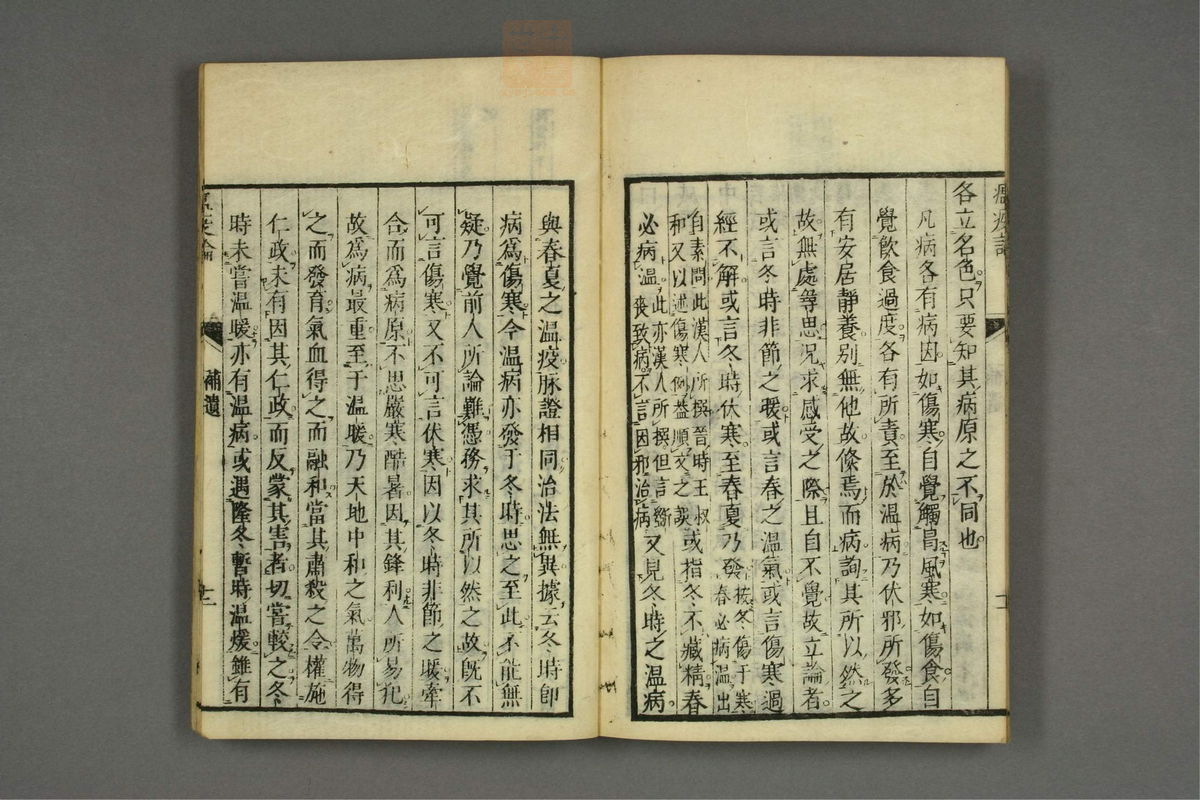 各立名色只要知其病原之不同也
凡病各有病因如傷寒自覺觸冒風寒如傷食自
覺飲食過度各有所責至於温病乃伏邪所發多
有安居靜養别無他故倐焉而病詢其所以然之
故無處尋思况求感受之際且自不覺故立論者
或言冬時非節之暖或言春之温氣或言傷寒過
經不解或言冬時伏寒至春夏乃發按冬傷于寒春必病温出
自素問此漢人所撰晉時王叔和又以述傷寒例蓋順文之誤或指冬不藏精春
必病温此亦漢人所撰但言斵喪致病不言因邪治病又見冬時之温病
與春夏之温疫脉證相同治法無異據云冬時即
病爲傷寒今温病亦發于冬時思之至此不能無
疑乃覺前人所論難憑務求其所以然之故既不
可言傷寒又不可言伏寒因以冬時非節之暖牽
合而爲病原不思嚴寒酷暑因其鋒利人所易犯
故爲病最重至于温暖乃天地中和之氣萬物得
之而發育氣血得之而融和當其肅殺之令權施
仁政未有因其仁政而反蒙其害者切嘗較之冬
時未嘗温暖亦有温病或遇隆冬暫時温煖雖有
補遺